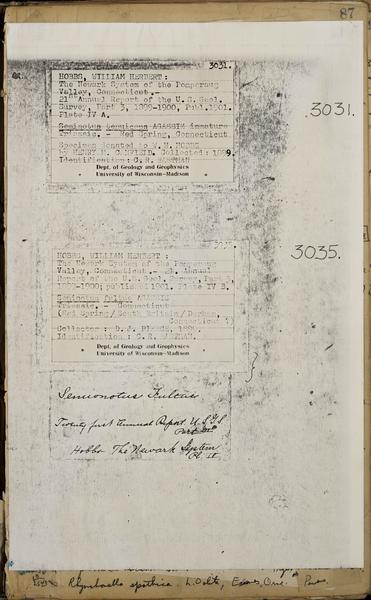 87
3031.
HOBBS, WILLIAM HERBERT:
The Newark System of the Pomperaug
Valley, Connecticut.-
21st Annual Report of the U.S. Geol.
Survey, Part 3, 1899-1900, Publ.1901.
Plate IV A.
AGASSIZ
Triassic. - Red Spring, Connecticut
Specimen donated to W.H. HOBBS
by HENRY M. CANFIELD. Collected: 1899.
Identification: C.R. EASTMAN
Dept. of Geology and Geophysics
University of Wisconsin-Madison
3031.
3035.
HOBBS, WILLIAM HERBERT :
The Newark System of the Pomperaug
Valley, Connecticut. - 21. Annual
Report of the U.S. Geol. Survey, Part
1899-1900; published 1901. Plate IV B.
AGASSIZ
Triassic. - Connecticut
(Red Spring/South Britain/Durham,
Connecticut ?)
Collector: D.J.
Identification: C.R. EASTMAN.
Dept. of Geology and Geophysics
University of Wisconsin-Madison
3035.
Semionotus Fulcus
Twenty first Annual Report U.S.G.S
Part III
Hobbs The Newark System
Pl. IV